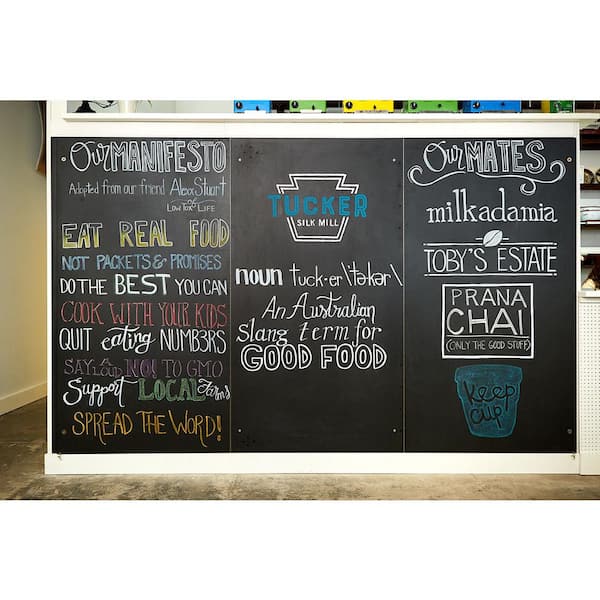 Our MANIFESTO
Adapted from our friend Alexx Stuart
of
Low Tox LIFE
EAT REAL FOOD
NOT PACKETS & PROMISES
DO THE BEST YOU CAN
COOK WITH YOUR KIDS
QUIT eating NUMB3RS
SAY Loud NO! TO GMO
Support LOCAL Farms
SPREAD THE WORD!
TUCKER
SILK MILL
noun tuck·er \'tə-kər\
An Australian
slang term for
GOOD FOOD
Our MATES
milkadamia
TOBY'S ESTATE
PRANA
CHAI
(ONLY THE GOOD STUFF)
Keep
CUP